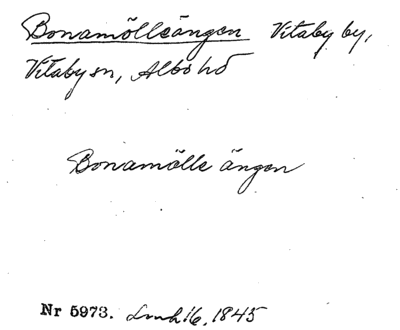 Bonamölleängen Vitaby by,
Vitaby sn, Albo hd
Bonamölle ängen
Nr 5973. 16, 1845